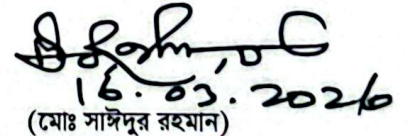 16.03.2026
(মোঃ সাঈদুর রহমান)